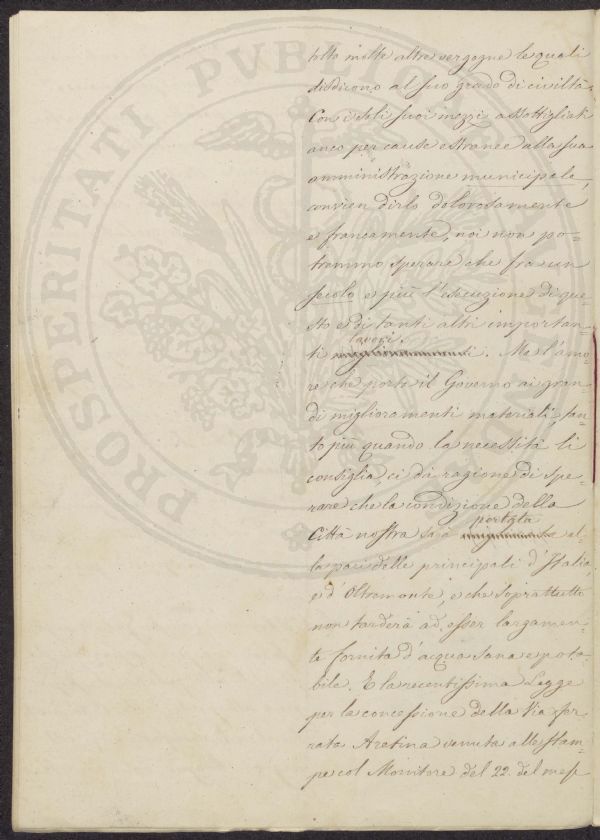 tolto molte altre vergogne le quali
disdicono al suo grado di civiltà.
Con i soli suoi mezzi assottigliati
anco per cause estranee alla sua
amministrazione municipale,
convien dirlo dolorosamente
e francamente, noi non po=
tremmo sperare che fra un
secolo e più l'esecuzione di que
sto e di tanti altri importan=
lavori
ti. Ma l'amo=
re che porta il Governo ai gran=
di miglioramenti materiali, tan=
to più quando la necessità li
consiglia, ci dà ragione di spe=
rare che la condizione della
portata
Città nostra sarà al=
la pari delle principali d'Italia,
e d'Oltremonte, e che soprattutto
non tarderà ad esser largamen=
te fornita d'acqua sana e pota=
bile. E la recentissima Legge
per la concessione della Via fer=
rata Aretina venuta alle stam=
pe col Monitore del 22. del mese
PROSPERITATI PUBLICAE